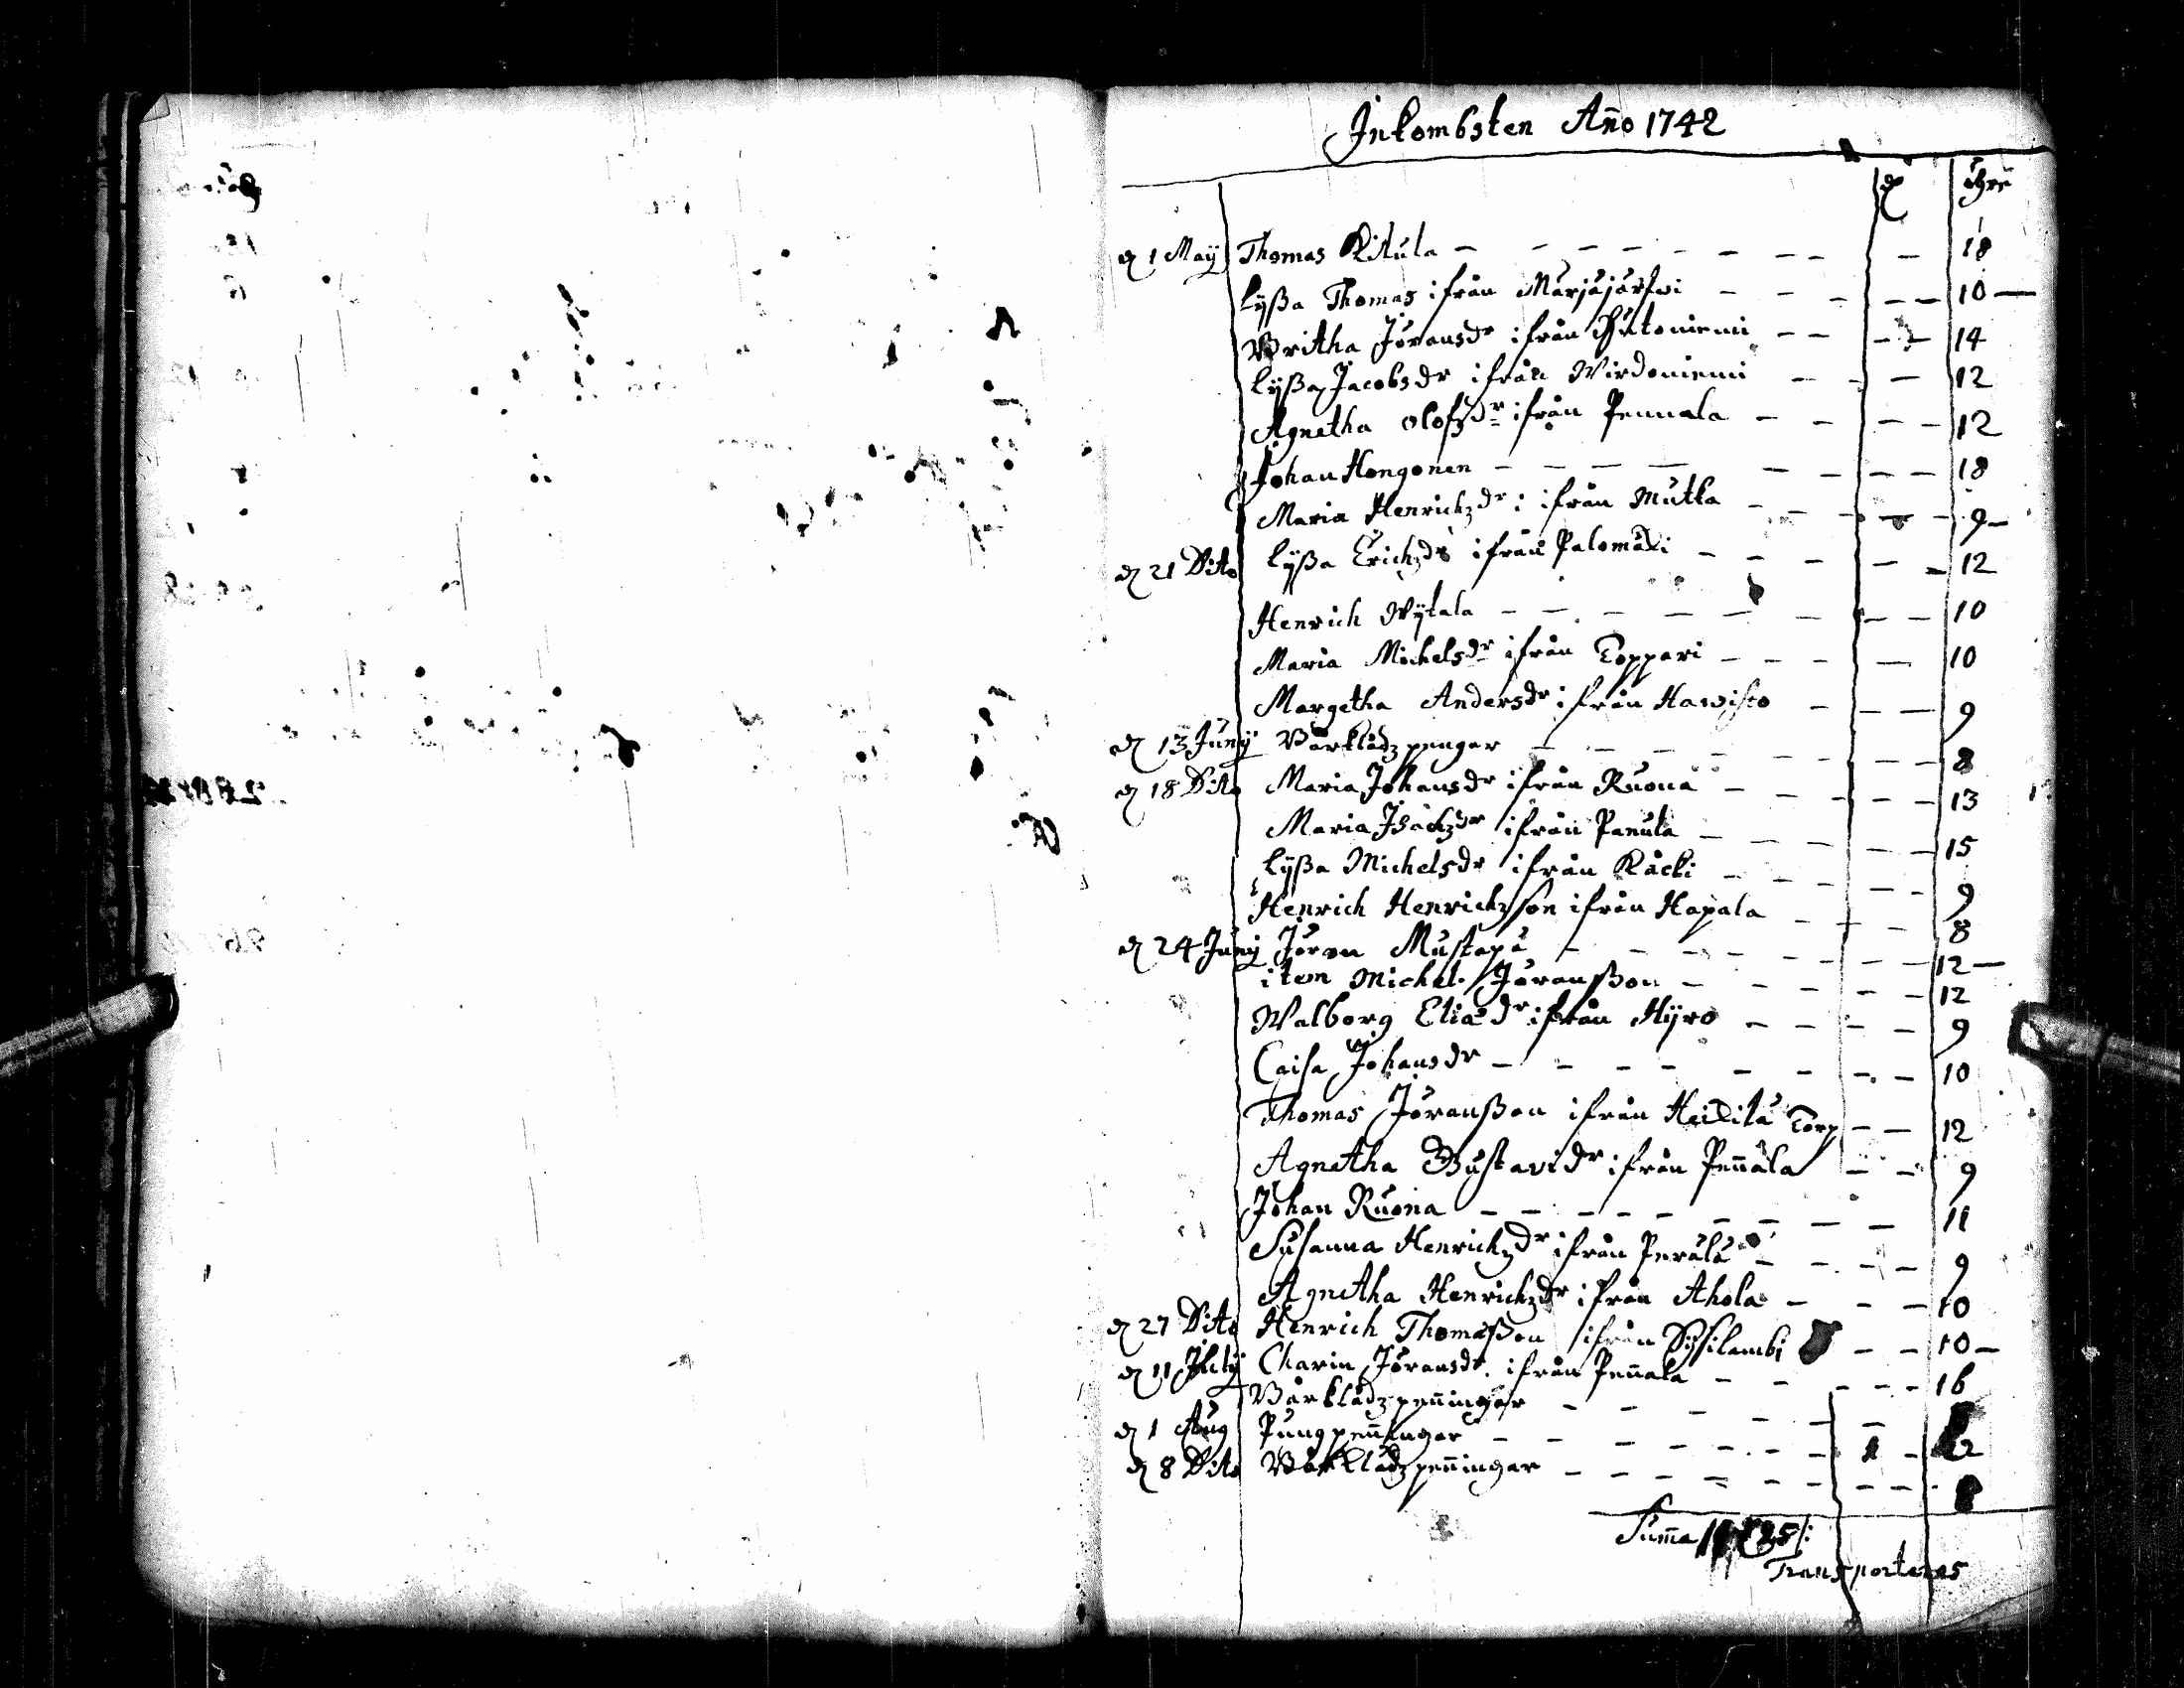 Inkombsten Año 1742
öhre
d 1 Maÿ Thomas Kitula — — — — — — — — — 18
Lÿßa Thomas ifrån Marjajärfwi — — — — — 10 —
Britha Jöransdr ifrån Hutoniemi — — — — 14
Lÿßa Jacobsdr ifrån Wirdoniemi — — — 12
Agnetha Olofzdr ifrån Pennala — — — — 12
Johan Hongonen — — — — — — — — 18
Maria Henrichzdr: ifrån Mutka — — — — — 9 —
d 21 Dito Lÿßa Erichzdr ifrån Palomäki — — — — — 12
Henrich Wÿtala — — — — — — — — 10
Maria Michelsdr ifrån Toppari — — — — 10
Margetha Andersdr ifrån Hawisto — — — 9
d 13 Junÿ Bårklädz pengar — — — — — — — 8
d 18 Dito Maria Johansdr ifrån Ruona — — — — — 13
Maria Isachzdr ifrån Panula — — — — — 15
Lÿßa Michelsdr ifrån Käcki — — — — — 9
Henrich Henrichzson ifrån Hapala — — — 8
d 24 Junÿ Jören Mustapä — — — — — — — — 12 —
item Michel Jöranßon — — — — — 12
Walborg Eliædr ifrån Hÿrö — — — — 9
Caisa Johansdr — — — — — — — — 10
Thomas Jöranßon ifrån Heikilä Torp — — 12
Agnetha Gustavidr ifrån Peñala — — 9
Johan Ruona — — — — — — — — — 11
Susanna Henrichzdr ifrån Perälä — — — — 9
Agnetha Henrichzdr ifrån Ahola — — — 10
d 27 Dito Henrich Thomaßon ifrån Sÿsilambi — — 10 —
d 11 Julÿ Charin Jöransdr. ifrån Peñala — — — — — 16
Bårklädz peñingar — — — — —
d 1 Aug Pungpeñingar — — — — — — — 1 — 2
d 8 Dito Bårklädz peñingar — — — — — — — 8
Sum̄a
Transporteras